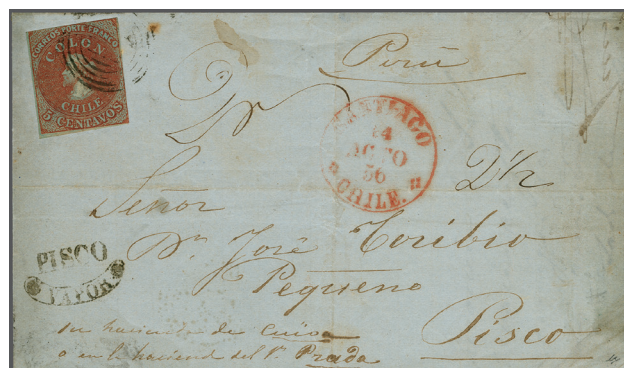 CORREOS PORTE FRANCO
COLON
CHILE
5 CENTAVOS
Perú
SANTIAGO
14
AGTO
56
CHILE.
D 1/2
Señor
Dn José Toribio
Pequeño
Pisco
PISCO
VAPOR
su hacienda de
o en la haciend del Sr. Prada